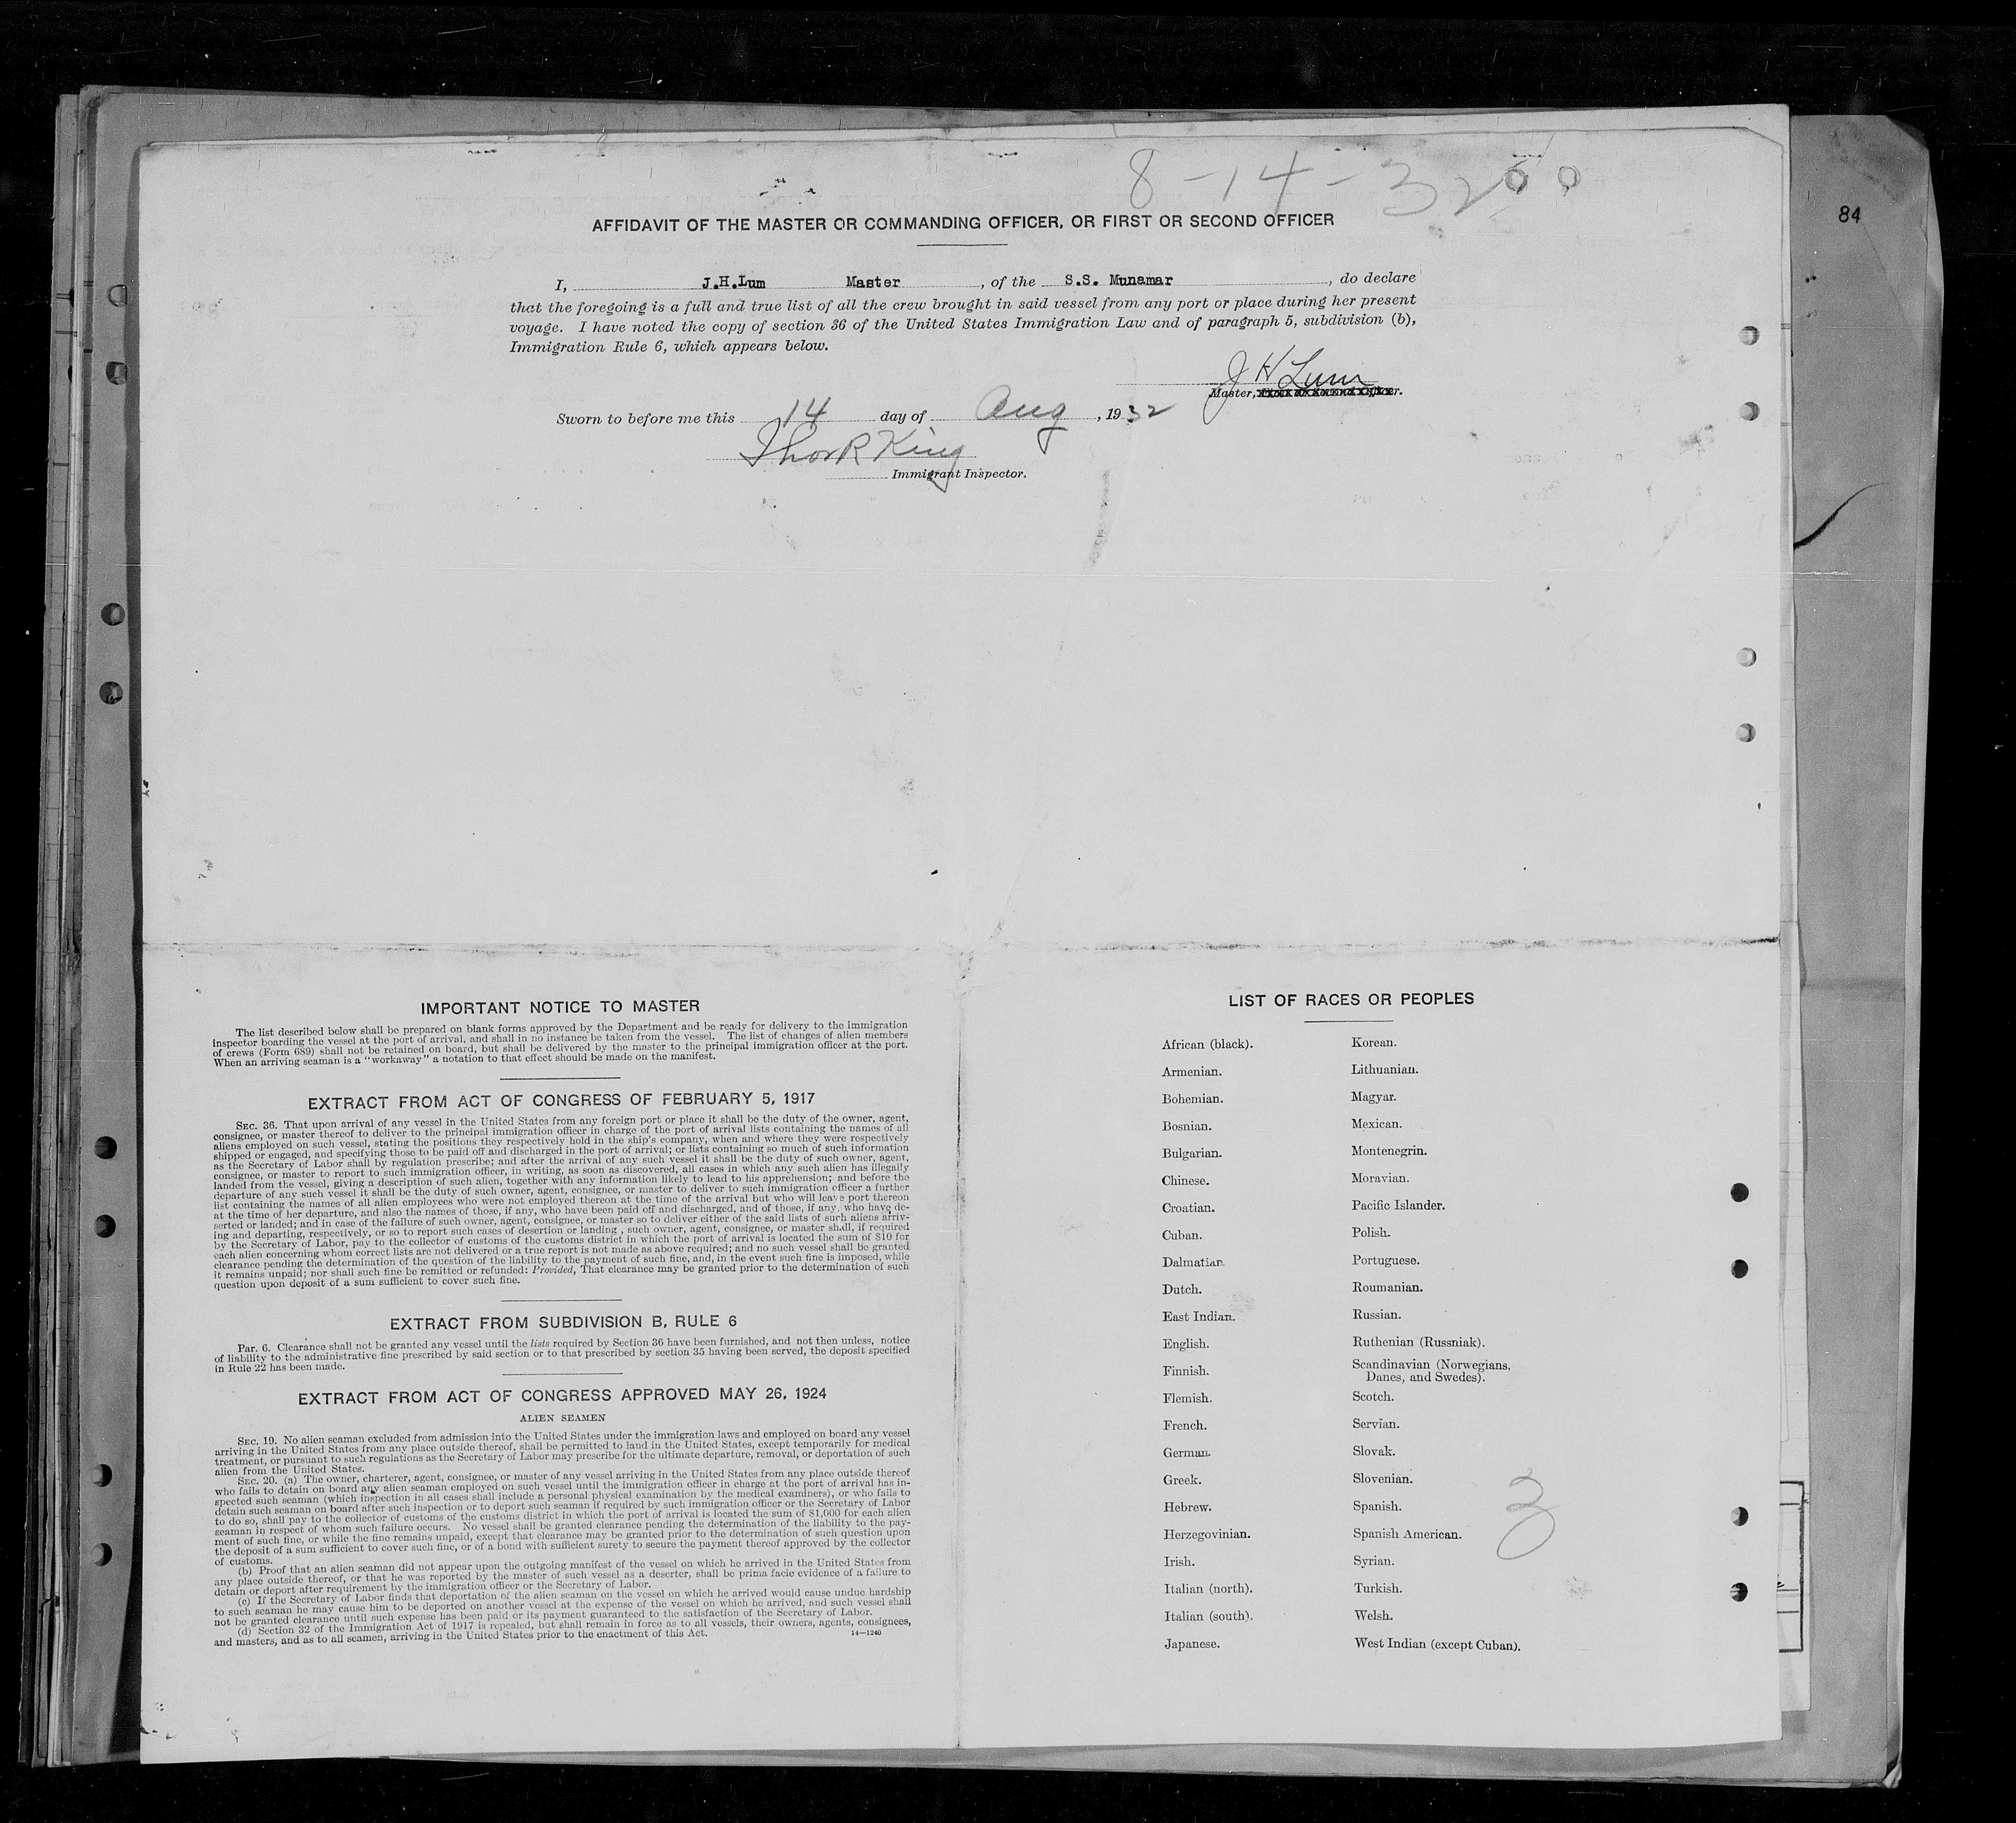 8-14-32
84
AFFIDAVIT OF THE MASTER OR COMMANDING OFFICER, OR FIRST OR SECOND OFFICER
I, J.H.Lum Master, of the S.S. Munamar, do declare
that the foregoing is a full and true list of all the crew brought in said vessel from any port or place during her present
voyage. I have noted the copy of section 36 of the United States Immigration Law and of paragraph 5, subdivision (b),
Immigration Rule 6, which appears below.
J H Lum
Master,
Sworn to before me this 14 day of Aug, 1932
Thos R King
Immigrant Inspector.
IMPORTANT NOTICE TO MASTER
The list described below shall be prepared on blank forms approved by the Department and be ready for delivery to the immigration
inspector boarding the vessel at the port of arrival, and shall in no instance be taken from the vessel. The list of changes of alien members
of crews (Form 689) shall not be retained on board, but shall be delivered by the master to the principal immigration officer at the port.
When an arriving seaman is a "workaway" a notation to that effect should be made on the manifest.
EXTRACT FROM ACT OF CONGRESS OF FEBRUARY 5, 1917
SEC. 36. That upon arrival of any vessel in the United States from any foreign port or place it shall be the duty of the owner, agent,
consignee, or master thereof to deliver to the principal immigration officer in charge of the port of arrival lists containing the names of all
aliens employed on such vessel, stating the positions they respectively hold in the ship's company, when and where they were respectively
shipped or engaged, and specifying those to be paid off and discharged in the port of arrival; or lists containing so much of such information
as the Secretary of Labor shall by regulation prescribe; and after the arrival of any such vessel it shall be the duty of such owner, agent,
consignee, or master to report to such immigration officer, in writing, as soon as discovered, all cases in which any such alien has illegally
landed from the vessel, giving a description of such alien, together with any information likely to lead to his apprehension; and before the
departure of any such vessel it shall be the duty of such owner, agent, consignee, or master to deliver to such immigration officer a further
list containing the names of all alien employees who were not employed thereon at the time of the arrival but who will leave port thereon
at the time of her departure, and also the names of those, if any, who have been paid off and discharged, and of those, if any, who have de-
serted or landed; and in case of the failure of such owner, agent, consignee, or master so to deliver either of the said lists of such aliens arriv-
ing and departing, respectively, or so to report such cases of desertion or landing , such owner, agent, consignee, or master shall, if required
by the Secretary of Labor, pay to the collector of customs of the customs district in which the port of arrival is located the sum of $10 for
each alien concerning whom correct lists are not delivered or a true report is not made as above required; and no such vessel shall be granted
clearance pending the determination of the question of the liability to the payment of such fine, and, in the event such fine is imposed, while
it remains unpaid; nor shall such fine be remitted or refunded: Provided, That clearance may be granted prior to the determination of such
question upon deposit of a sum sufficient to cover such fine.
EXTRACT FROM SUBDIVISION B, RULE 6
Par. 6. Clearance shall not be granted any vessel until the lists required by Section 36 have been furnished, and not then unless, notice
of liability to the administrative fine prescribed by said section or to that prescribed by section 35 having been served, the deposit specified
in Rule 22 has been made.
EXTRACT FROM ACT OF CONGRESS APPROVED MAY 26, 1924
ALIEN SEAMEN
SEC. 19. No alien seaman excluded from admission into the United States under the immigration laws and employed on board any vessel
arriving in the United States from any place outside thereof, shall be permitted to land in the United States, except temporarily for medical
treatment, or pursuant to such regulations as the Secretary of Labor may prescribe for the ultimate departure, removal, or deportation of such
alien from the United States.
SEC. 20. (a) The owner, charterer, agent, consignee, or master of any vessel arriving in the United States from any place outside thereof
who fails to detain on board any alien seaman employed on such vessel until the immigration officer in charge at the port of arrival has in-
spected such seaman (which inspection in all cases shall include a personal physical examination by the medical examiners), or who fails to
detain such seaman on board after such inspection or to deport such seaman if required by such immigration officer or the Secretary of Labor
to do so, shall pay to the collector of customs of the customs district in which the port of arrival is located the sum of $1,000 for each alien
seaman in respect of whom such failure occurs. No vessel shall be granted clearance pending the determination of the liability to the pay-
ment of such fine, or while the fine remains unpaid, except that clearance may be granted prior to the determination of such question upon
the deposit of a sum sufficient to cover such fine, or of a bond with sufficient surety to secure the payment thereof approved by the collector
of customs.
(b) Proof that an alien seaman did not appear upon the outgoing manifest of the vessel on which he arrived in the United States from
any place outside thereof, or that he was reported by the master of such vessel as a deserter, shall be prima facie evidence of a failure to
detain or deport after requirement by the immigration officer or the Secretary of Labor.
(c) If the Secretary of Labor finds that deportation of the alien seaman on the vessel on which he arrived would cause undue hardship
to such seaman he may cause him to be deported on another vessel at the expense of the vessel on which he arrived, and such vessel shall
not be granted clearance until such expense has been paid or its payment guaranteed to the satisfaction of the Secretary of Labor.
(d) Section 32 of the Immigration Act of 1917 is repealed, but shall remain in force as to all vessels, their owners, agents, consignees,
and masters, and as to all seamen, arriving in the United States prior to the enactment of this Act.
14—1240
LIST OF RACES OR PEOPLES
African (black).
Armenian.
Bohemian.
Bosnian.
Bulgarian.
Chinese.
Croatian.
Cuban.
Dalmatian.
Dutch.
East Indian.
English.
Finnish.
Flemish.
French.
German.
Greek.
Hebrew.
Herzegovinian.
Irish.
Italian (north).
Italian (south).
Japanese.
Korean.
Lithuanian.
Magyar.
Mexican.
Montenegrin.
Moravian.
Pacific Islander.
Polish.
Portuguese.
Roumanian.
Russian.
Ruthenian (Russniak).
Scandinavian (Norwegians,
Danes, and Swedes).
Scotch.
Servian.
Slovak.
Slovenian.
Spanish.
Spanish American.
Syrian.
Turkish.
Welsh.
West Indian (except Cuban).
3